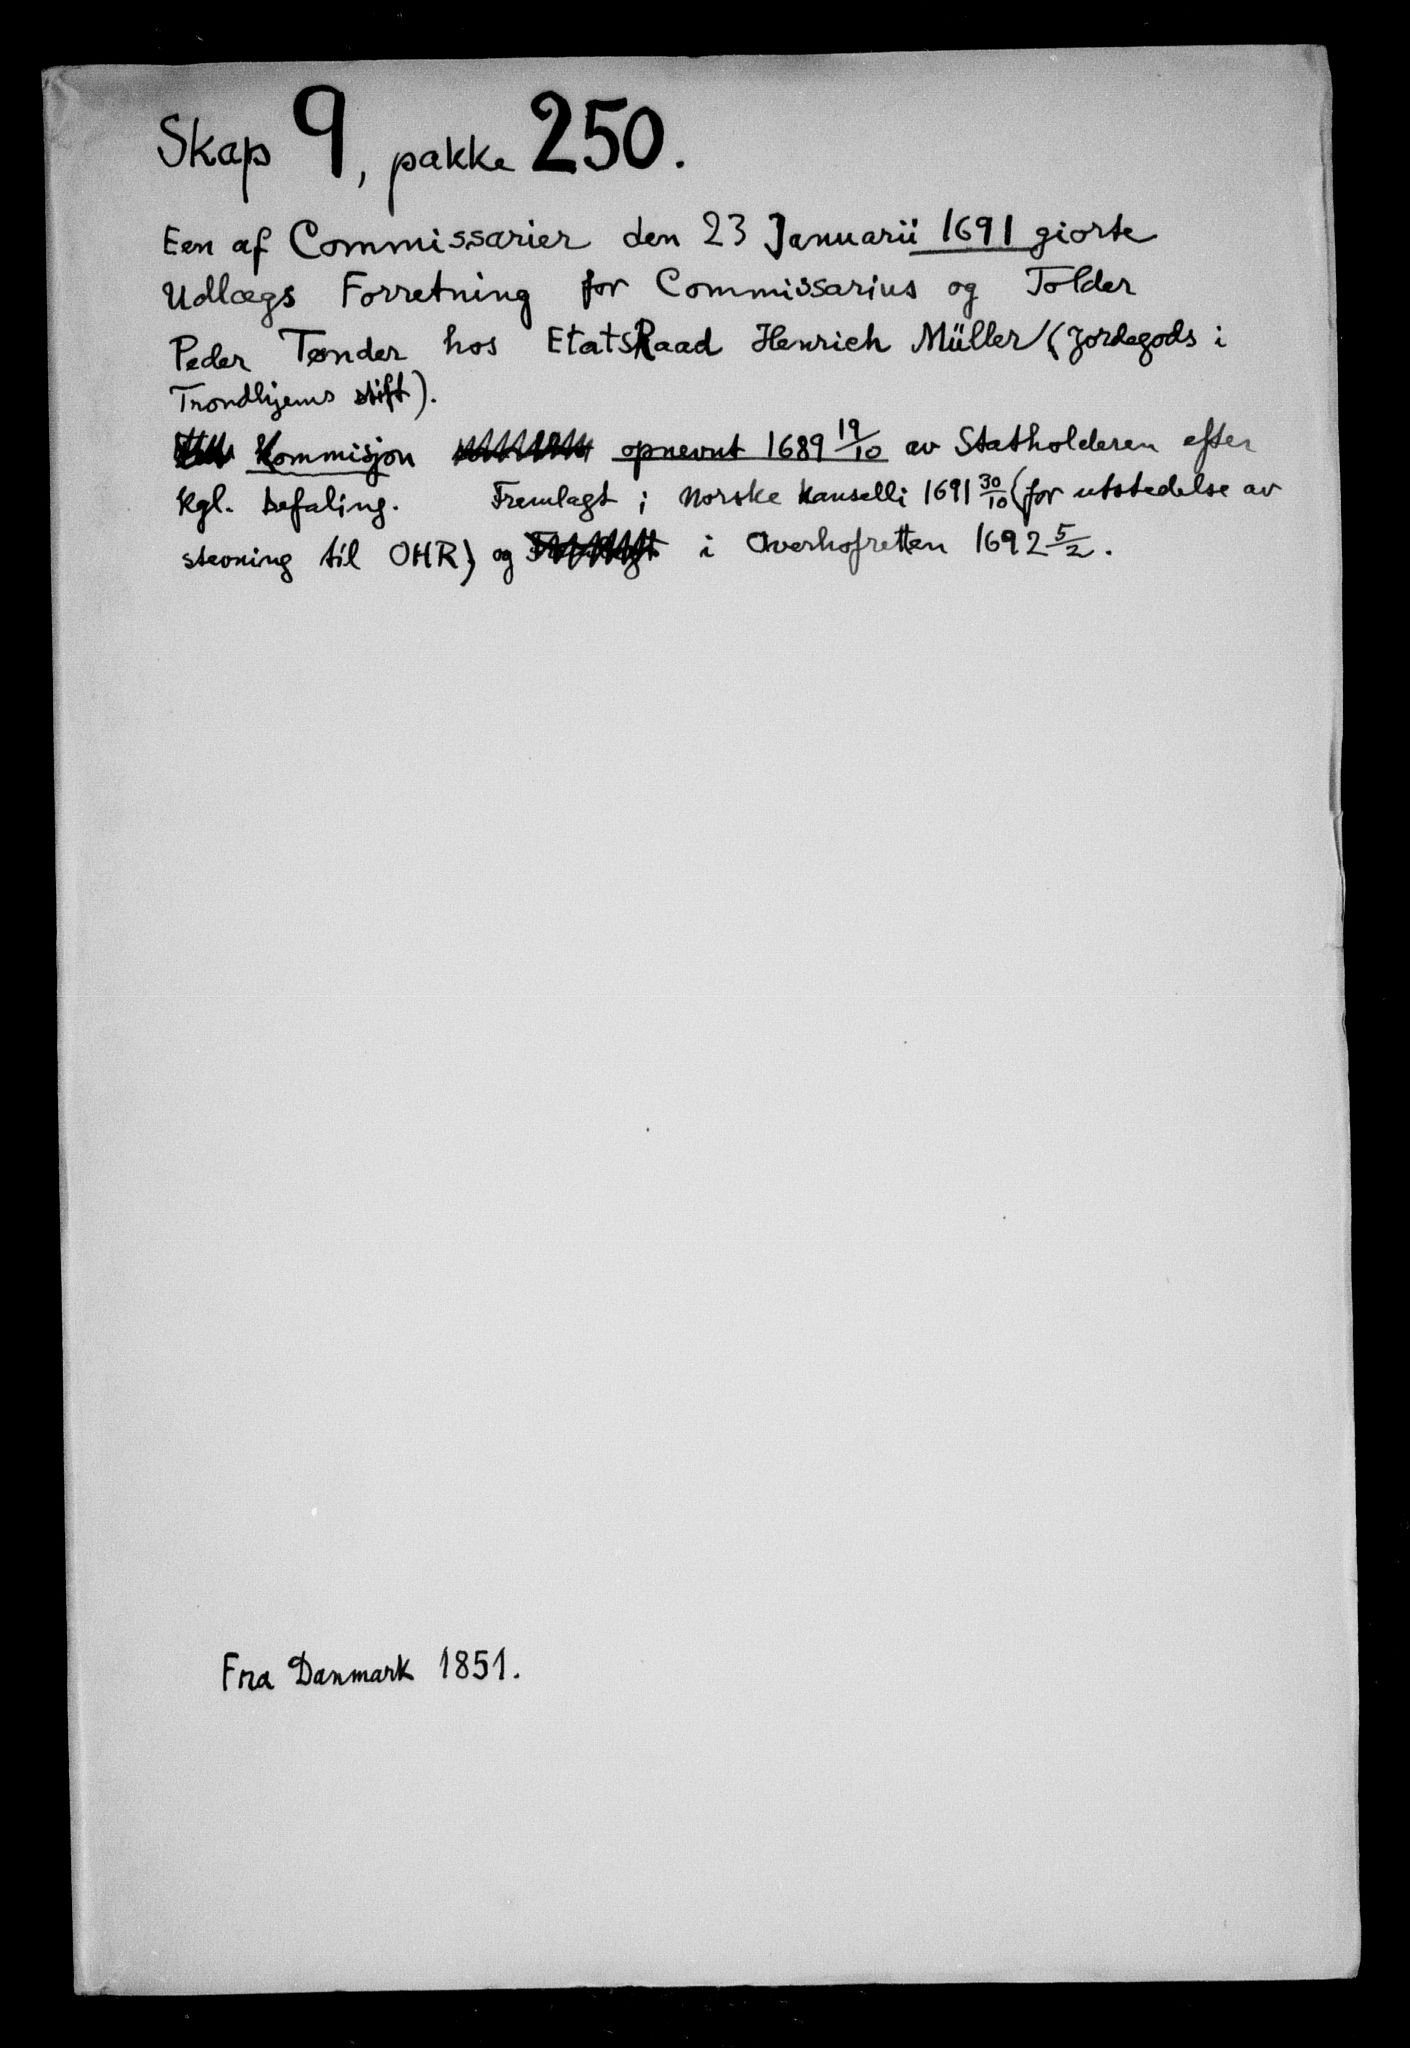 Skap 9, pakke 250.
Een af Commissarier den 23 Januarii 1691 giorte
Udlægs Forretning for Commissarius og Tolder
Peder Tønder hos EtatsRaad Henrich Müller (Jordegods i
Trondhjems stift).
Kommisjon opnevnt 1689 19/10 av Statholderen efter
kgl. befaling. Fremlagt i Norske Kanselli 1691 30/10 (for utstedelse av
stevning til OHR) og i Overhofretten 1692 5/2.
Fra Danmark 1851.